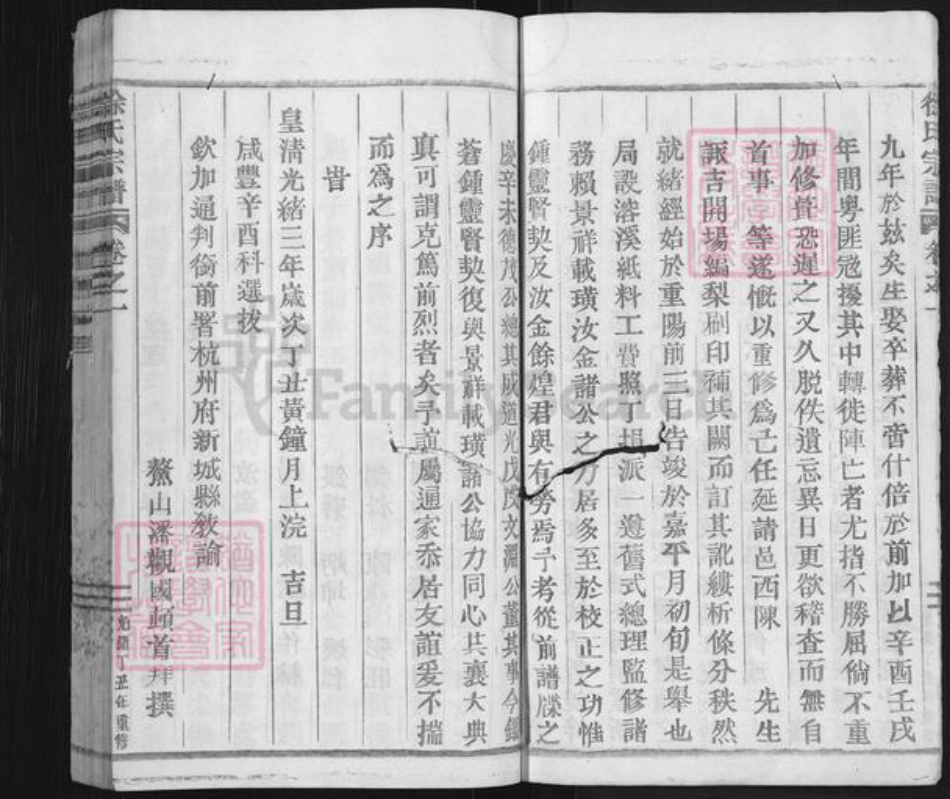 徐氏宗譜 卷之一
九年於玆矣生娶卒葬不啻什倍於前加以辛酉壬戌
年間粵匪寇擾其中轉徙陣亡者尤指不勝屈倘不重
加修葺恐遲之又久脫佚遺忘異日更欲稽查而無自
首事等遂慨以重修爲己任延請邑西陳 先生
諏吉開場編梨刷印補其闕而訂其訛縷析條分秩然
就緒經始於重陽前三日告竣於嘉平月初旬是舉也
局設溶溪紙料工費照丁捐派一遵舊式總理監修諸
務賴景祥載璜汝金諸公之力居多至於校正之功惟
鍾靈賢契及汝金餘煌君與有勞焉予考從前譜牒之
慶辛未德茂公總其成道光戊戌文淵公董其事今鎮
蒼鍾靈賢契復與景祥載璜諸公協力同心共襄大典
真可謂克篤前烈者矣予誼屬通家忝居友誼爰不揣
而為之序
旹
皇清光緒三年歲次丁丑黃鐘月上浣 吉旦
咸豐辛酉科選拔
欽加通判銜前署杭州府新城縣教諭
鰲山潘觀國頓首拜撰
徐氏宗譜 卷之一
光緒丁丑年重修
FamilySearch